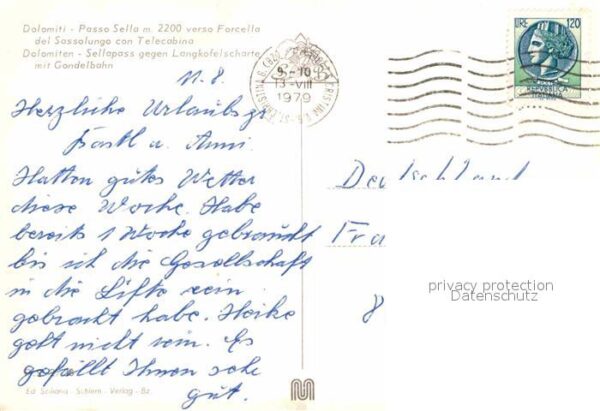 Dolomiti - Passo Sella m. 2200 verso Forcella
del Sassolungo con Telecabina
Dolomiten - Sellapass gegen Langkofelscharte
mit Gondelbahn
LIRE 120
REPVBBLICA
ITALIANA
9-10
13-VIII
1979
11. 8.
Herzliche Urlaubsgr
Bastl u. Anni.
Hatten gutes Wetter
diese Woche. Habe
bereits 1 Woche gebraucht
bis ich die Gesellschaft
in die Lifte rein
gebracht habe. Heike
geht nicht rein. Es
gefällt Ihnen sehr
gut.
Deutschland
Fra
8
privacy protection
Datenschutz
Ed. Sciliana - Schlern - Verlag - Bz.